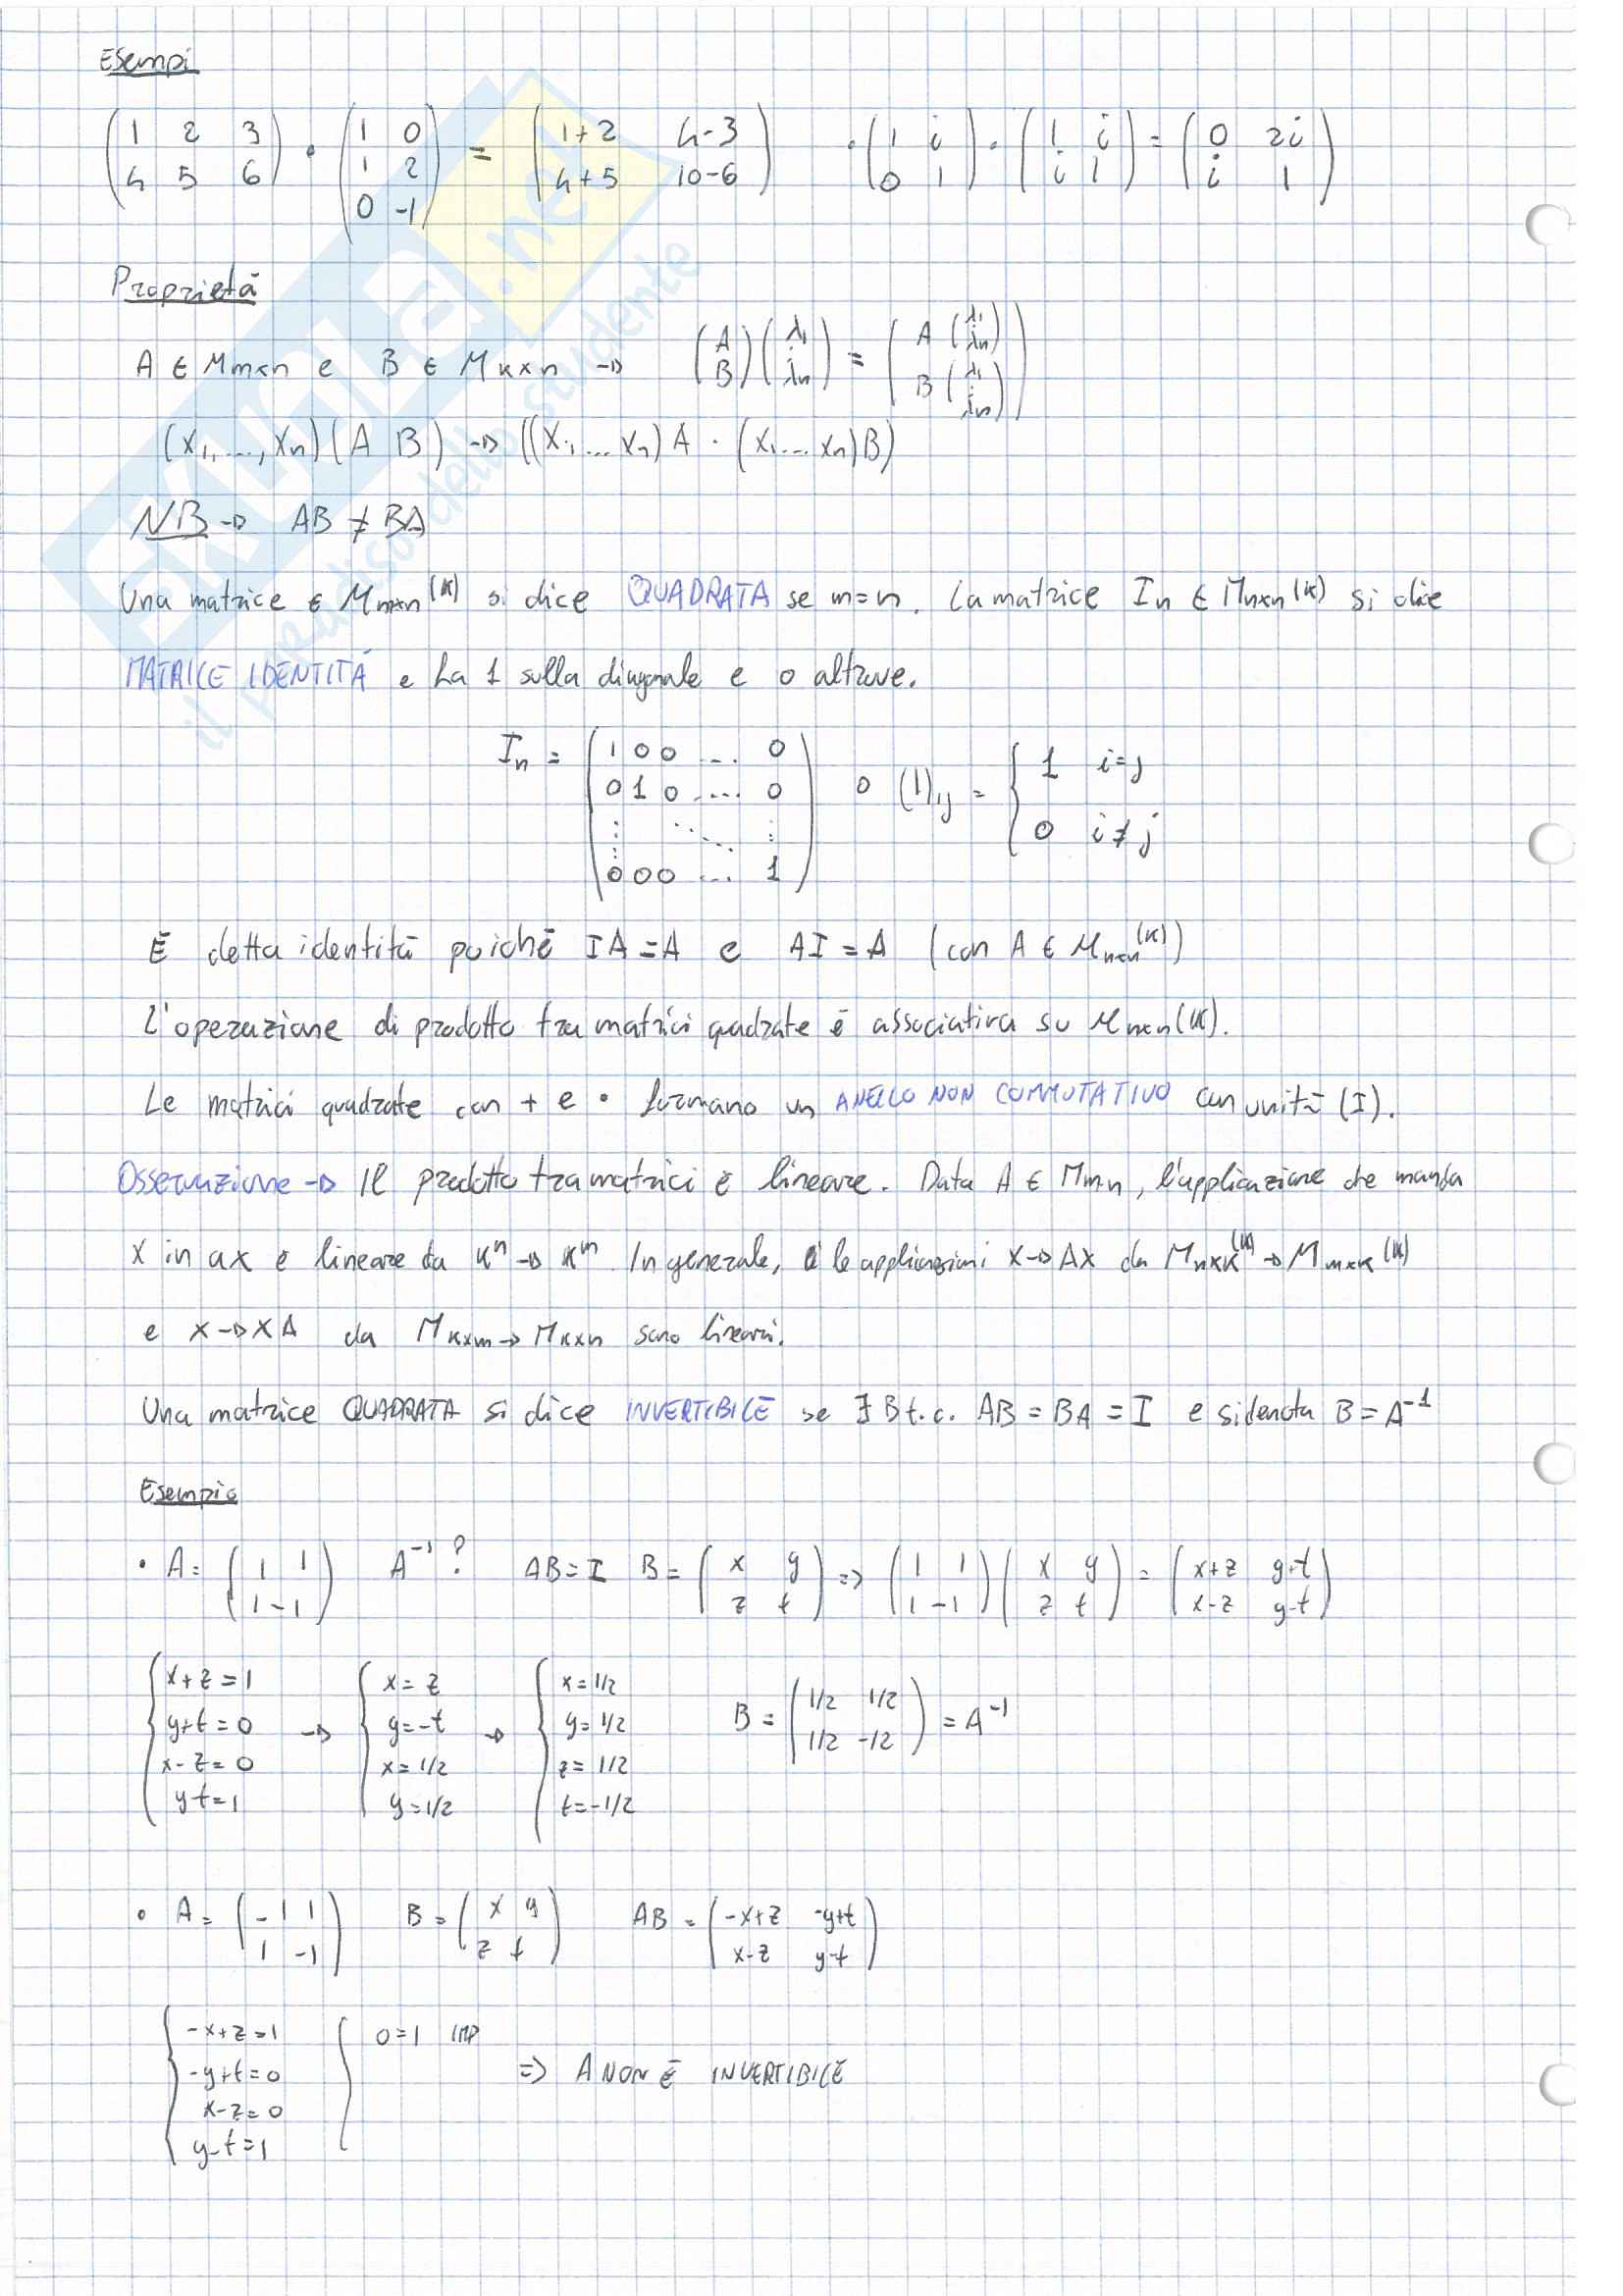 Esempi
( 1 2 3 / 4 5 6 ) · ( 1 0 / 1 2 / 0 -1 ) = ( 1+2 4-3 / 4+5 10-6 ) · ( 1 i / 0 1 ) · ( 1 i / i 1 ) = ( 0 2i / i 1 )
Proprietà
A ∈ Mm×n e B ∈ Mk×n → ( A / B ) ( λ1 / ⋮ / λn ) = ( A ( λ1 / ⋮ / λn ) / B ( λ1 / ⋮ / λn ) )
(x1,...,xn) (A B) → ((x1...xn) A · (x1...xn) B)
NB → AB ≠ BA
Una matrice ∈ Mm×n(K) si dice QUADRATA se m=n. La matrice In ∈ Mn×n(K) si dice
MATRICE IDENTITÀ e ha 1 sulla diagonale e 0 altrove.
In = ( 1 0 0 ... 0 / 0 1 0 .... 0 / ⋮ ⋱ ⋮ / 0 0 0 ... 1 ) o (I)ij = { 1 i=j / 0 i≠j
È detta identità poiché IA=A e AI=A (con A ∈ Mn×n(K))
L'operazione di prodotto tra matrici quadrate è associativa su Mn×n(K).
Le matrici quadrate con + e · formano un ANELLO NON COMMUTATIVO con unità (I).
Osservazione → Il prodotto tra matrici è lineare. Data A ∈ Mm,n, l'applicazione che manda
X in ax è lineare da Kn → Km. In generale, le applicazioni X→AX da Mn×K(K) → Mm×K(K)
e X→XA da MK×m → MK×n sono lineari.
Una matrice QUADRATA si dice INVERTIBILE se ∃ B t.c. AB = BA = I e si denota B = A-1
Esempio
· A = ( 1 1 / 1 -1 ) A-1? AB=I B = ( x y / z t ) => ( 1 1 / 1 -1 ) ( x y / z t ) = ( x+z y+t / x-z y-t )
{ x+z=1 / y+t=0 / x-z=0 / y-t=1 → { x=z / y=-t / x=1/2 / y=1/2 → { x=1/2 / y=1/2 / z=1/2 / t=-1/2 B = ( 1/2 1/2 / 1/2 -12 ) = A-1
· A = ( -1 1 / 1 -1 ) B = ( x y / z t ) AB = ( -x+z -y+t / x-z y-t )
{ -x+z=1 / -y+t=0 / x-z=0 / y-t=1 { 0=1 IMP => A NON È INVERTIBILE
SKUOLA.net
il paradiso dello studente